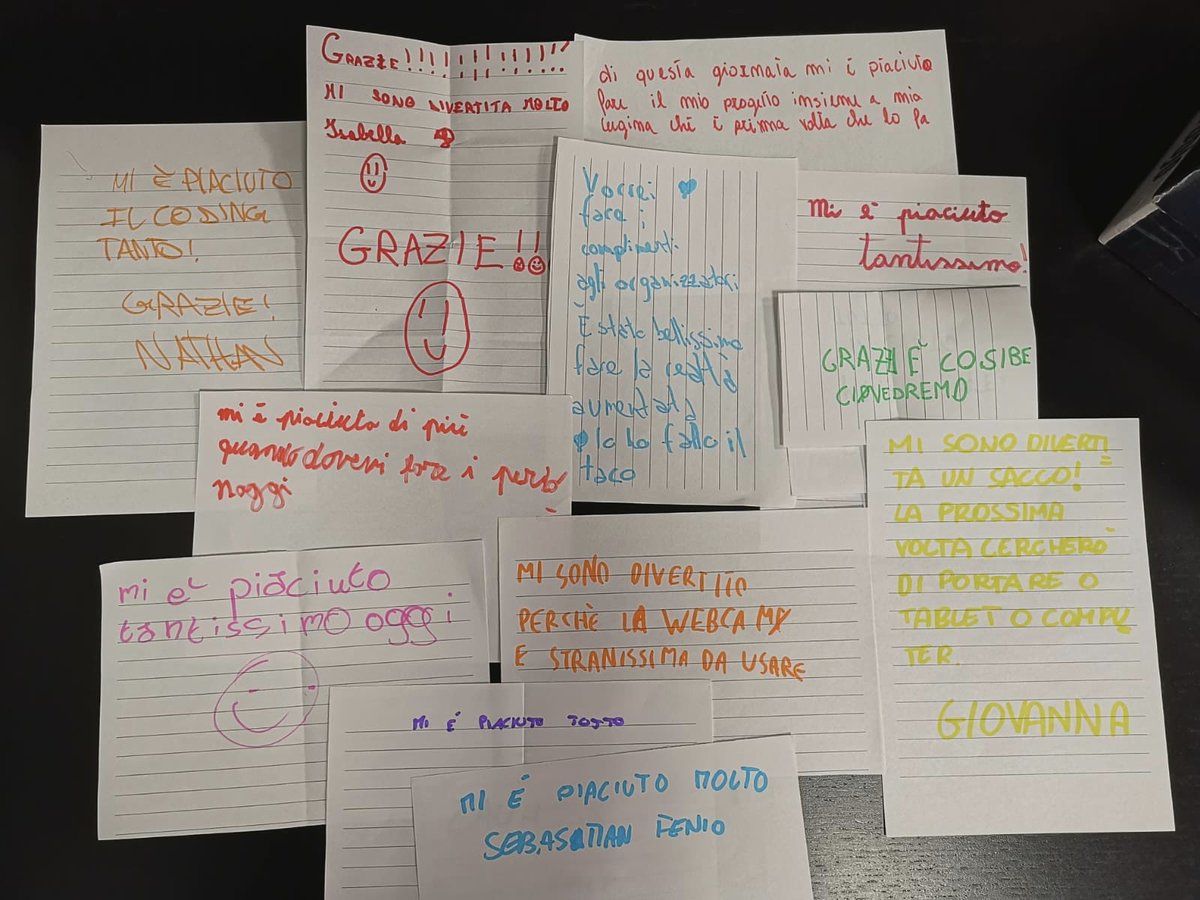 GRAZIE!!!!!!!!!!!!
MI SONO DIVERTITA MOLTO
Isabella
GRAZIE!!
di questa giornata mi è piaciuto
fare il mio progetto insieme a mia
cugina che è prima volta che lo fa
MI È PIACIUTO
IL CODING
TANTO!
GRAZIE!
NATHAN
Vorrei
fare i
complimenti
agli organizzatori
È stato bellissimo
fare la realtà
aumentata
Io ho fatto il
taco
mi è piaciuto
tantissimo!
GRAZIE COSIBE
CI VEDREMO
mi è piaciuto di più
quando dovevi fare i perso
naggi
MI SONO DIVERTI
TA UN SACCO!
LA PROSSIMA
VOLTA CERCHERÒ
DI PORTARE O
TABLET O COMPU
TER.
GIOVANNA
mi è piaciuto
tantissimo oggi
MI SONO DIVERTITO
PERCHÈ LA WEBCAM
E STRANISSIMA DA USARE
MI È PIACIUTO TUTTO
MI È PIACIUTO MOLTO
SEBASATIAN FENIO